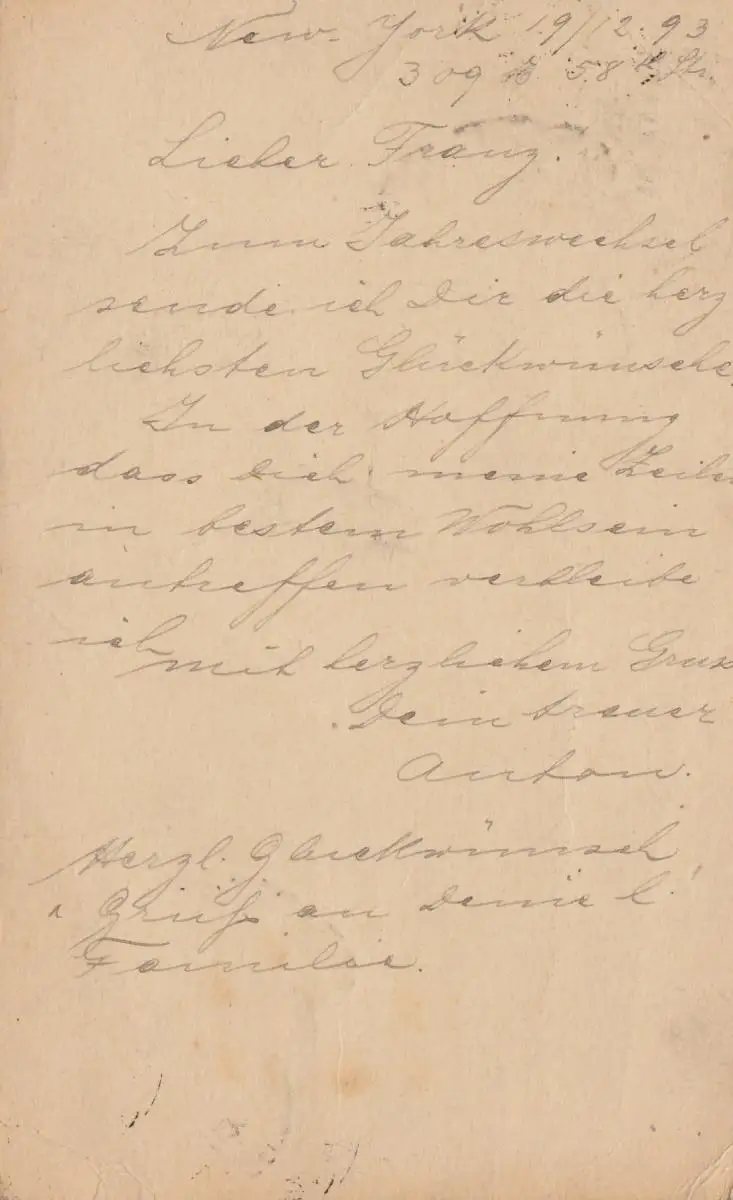 New-York 19/12.93
309 E 58th Str.
Lieber Franz.
Zum Jahreswechsel
sende ich Dir die herz
lichsten Glückwünsche.
In der Hoffnung
dass Dich meine Zeilen
in bestem Wohlsein
antreffen verbleibe
ich
mit herzlichem Gruss
Dein treuer
Anton.
Herzl. Glückwünsch
u Gruß an Deine l.
Familie.